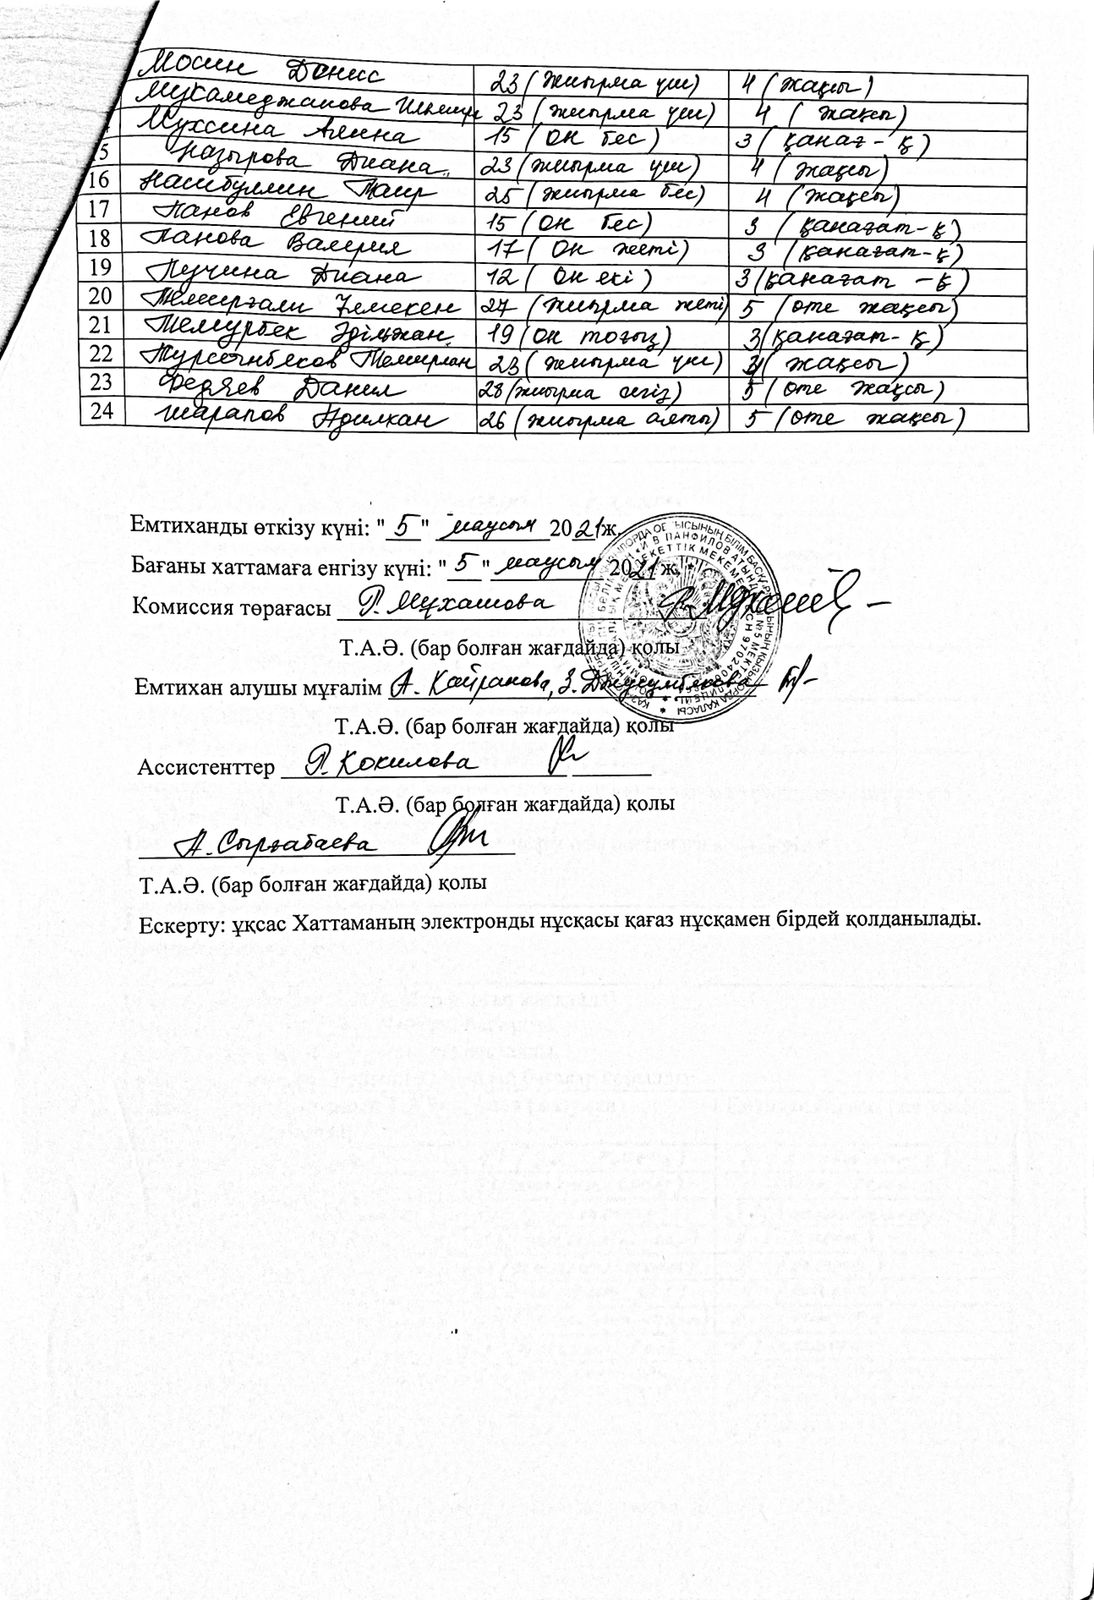 Мосин Денис 23 (жиырма үш) 4 (жақсы)
Мухамеджанова 23 (жиырма үш) 4 (жақсы)
Мухсина Алина 15 (он бес) 3 (қанағ-қ)
15 Назырова Диана 23 (жиырма үш) 4 (жақсы)
16 Насибуллин Таир 25 (жиырма бес) 4 (жақсы)
17 Панов Евгений 15 (он бес) 3 (қанағат-қ)
18 Панова Валерия 17 (он жеті) 3 (қанағат-қ)
19 Пучина Диана 12 (он екі) 3 (қанағат-қ)
20 Темірғали 27 (жиырма жеті) 5 (өте жақсы)
21 Темурбек Әділжан 19 (он тоғыз) 3 (қанағат-қ)
22 Турсынбеков Темирлан 23 (жиырма үш) 4 (жақсы)
23 Федяев Данил 28 (жиырма сегіз) 5 (өте жақсы)
24 Шарапов Адилхан 26 (жиырма алты) 5 (өте жақсы)
Емтиханды өткізу күні: "5" маусым 2021ж.
Бағаны хаттамаға енгізу күні: "5" маусым 2021ж.
Комиссия төрағасы Р. Мұхашова
Т.А.Ә. (бар болған жағдайда) қолы
Емтихан алушы мұғалім А. Кайранова, З.
Т.А.Ә. (бар болған жағдайда) қолы
Ассистенттер Р. Кокилова
Т.А.Ә. (бар болған жағдайда) қолы
А. Сырғабаева
Т.А.Ә. (бар болған жағдайда) қолы
Ескерту: ұқсас Хаттаманың электронды нұсқасы қағаз нұсқамен бірдей қолданылады.